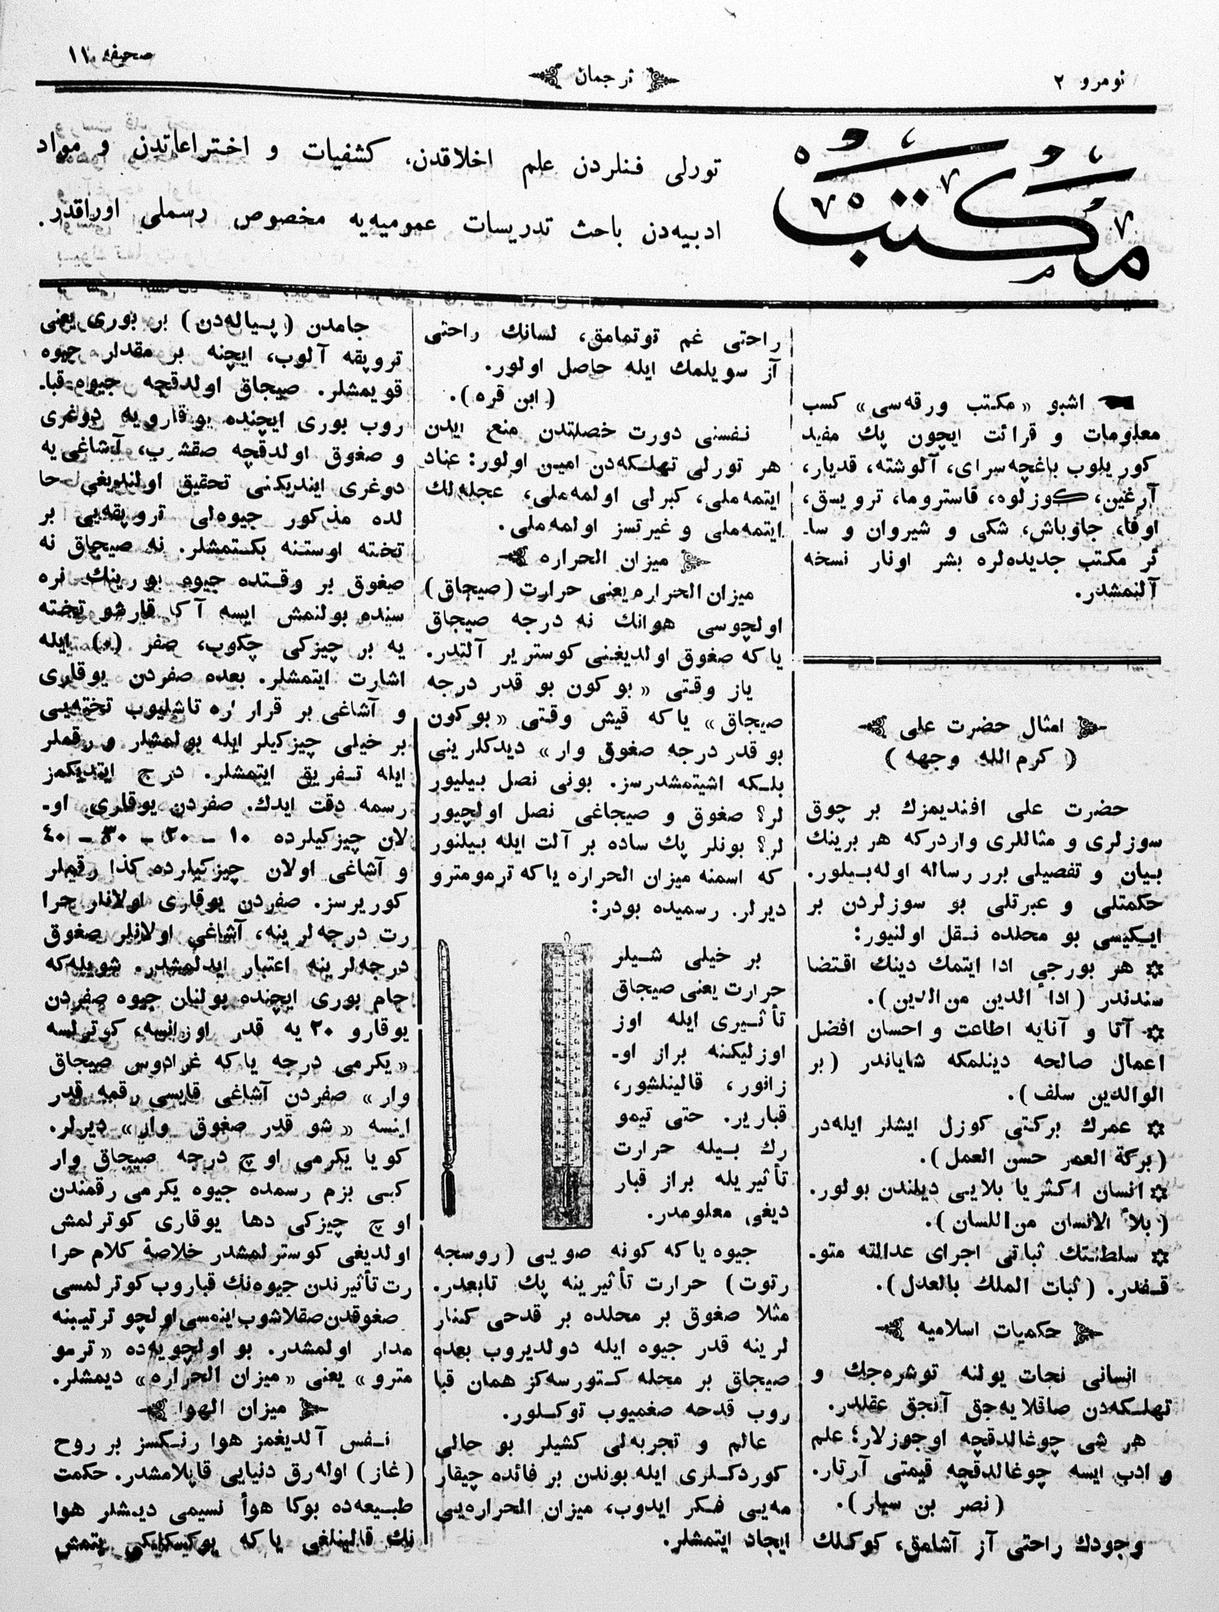 نومرو ٢
ترجمان
صحیفه ١١
مكتب
تورلی فنلردن علم اخلاقدن، كشفیات و اختراعاتدن و مواد
ادبیه‌دن باحث تدریسات عمومیه‌یه مخصوص رسملی اوراقدر.
اشبو «مكتب ورقه‌سی» كسب
معلومات و قرائت ایچون پك مفید
كوریلوب باغچه‌سرای، آلوشته، قدیار،
آرغین، كوزلوه، قاستروما، ترویسق،
اوفا، جاوباش، شكی و شیروان و سا-
ئر مكتب جدیده‌لره بشر اونار نسخه
آلنمشدر.
امثال حضرت علی
(كرم الله وجهه)
حضرت علی افندیمزك بر چوق
سوزلری و مثاللری واردركه هر برینك
بیان و تفصیلی برر رساله اوله‌بیلور.
حكمتلی و عبرتلی بو سوزلردن بر
ایكیسی بو محلده نقل اولنیور:
هر بورجی ادا ایتمك دینك اقتضا
سندندر (ادا الدین من الدین).
آتا و آنایه اطاعت و احسان افضل
اعمال صالحه دینلمكه شایاندر (بر
الوالدین سلف).
عمرك بركتی كوزل ایشلر ایله‌در
(بركة العمر حسن العمل).
انسان اكثریا بلایی دیلندن بولور.
(بلاء الانسان من اللسان).
سلطنتك ثباتی اجرای عدالته متو-
قفدر. (ثبات الملك بالعدل).
حكمیات اسلامیه
انسانی نجات یولنه توشره‌جك و
تهلكه‌دن صاقلایه‌جق آنجق عقلدر.
هر شی چوغالدقچه اوجوزلار؛ علم
و ادب ایسه چوغالدقچه قیمتی آرتار.
(نصر بن سیار).
وجودك راحتی آز آشامق، كوكلك
راحتی غم توتمامق، لسانك راحتی
آز سویلمك ایله حاصل اولور.
(ابن قره).
نفسنی دورت خصلتدن منع ایدن
هر تورلی تهلكه‌دن امین اولور: عناد
ایتمه‌ملی، كبرلی اولمه‌ملی، عجله‌لك
ایتمه‌ملی و غیرتسز اولمه‌ملی.
میزان الحراره
میزان الحراره یعنی حرارت (صیجاق)
اولچوسی هوانك نه درجه صیجاق
یاكه صغوق اولدیغنی كوستریر آلتدر.
یاز وقتی «بوكون بو قدر درجه
صیجاق» یاكه قیش وقتی «بوكون
بو قدر درجه صغوق وار» دیدكلرینی
بلكه اشیتمشدرسز. بونی نصل بیلیور
لر؟ صغوق و صیجاغی نصل اولچیور
لر؟ بونلر پك ساده بر آلت ایله بیلنور
كه اسمنه میزان الحراره یاكه ترمومترو
دیرلر. رسمیده بودر:
بر خیلی شیلر
حرارت یعنی صیجاق
تأثیری ایله اوز
اوزلیكنه براز او-
زانور، قالینلشور،
قباریر. حتی تیمو
رك بیله حرارت
تأثیریله براز قبار
دیغی معلومدر.
جیوه یاكه كونه صویی (روسجه
رتوت) حرارت تأثیرینه پك تابعدر.
مثلا صغوق بر محلده بر قدحی كنار
لرینه قدر جیوه ایله دولدیروب بعده
صیجاق بر محله كتورسه‌كز همان قبا
روب قدحه صغمیوب توكلور.
عالم و تجربه‌لی كشیلر بو حالی
كوردكلری ایله بوندن بر فائده چیقار
مه‌یی فكر ایدوب، میزان الحراره‌یی
ایجاد ایتمشلر.
جامدن (پیاله‌دن) بر بوری یعنی
تروپقه آلوب، ایچنه بر مقدار جیوه
قویمشلر. صیجاق اولدقچه جیوه قبا-
روب بوری ایچنده یوقارویه دوغری
و صغوق اولدقچه صقشوب، آشاغی‌یه
دوغری ایندیكنی تحقیق اولندیغی حا
لده مذكور جیوه‌لی تروپقه‌یی بر
تخته اوستنه بكتمشلر. نه صیجاق نه
صغوق بر وقتده جیوه بورینك نره
سنده بولنمش ایسه آكا قارشو تخته
یه بر چیزكی چكوب، صفر (٠) ایله
اشارت ایتمشلر. بعده صفردن یوقاری
و آشاغی بر قراره تاشلیوب تخته‌یی
بر خیلی چیزكیلر ایله بولمشلر و رقملر
ایله تفریق ایتمشلر. درج ایتدیكمز
رسمه دقت ایدك. صفردن یوقاری او-
لان چیزكیلرده ١٠ - ٢٠ - ٣٠ - ٤٠
و آشاغی اولان چیزكیلرده كذا رقیملر
كوریرسز. صفردن یوقاری اولانلر حرا
رت درجه‌لرینه، آشاغی اولانلر صغوق
درجه‌لرینه اعتبار ایدلمشدر. شویله‌كه
جام بوری ایچنده بولنان جیوه صفردن
یوقارو ٢٠ یه قدر اورلنسه، كوترلسه
«یكرمی درجه یاكه غرادوس صیجاق
وار» صفردن آشاغی قایسی رقمه قدر
اینسه «شو قدر صغوق وار» دیرلر.
كویا یكرمی اوچ درجه صیجاق وار
كبی بزم رسمده جیوه یكرمی رقمندن
اوچ چیزكی دها یوقاری كوترلمش
اولدیغی كوسترلمشدر خلاصهٔ كلام حرا
رت تأثیرندن جیوه‌نك قباروب كوترلمسی
صغوقدن صقلاشوب اینمسی اولچو ترتیبنه
مدار اولمشدر. بو اولچویه‌ده «ترمو
مترو» یعنی «میزان الحراره» دیمشلر.
میزان الهوا
نفس آلدیغمز هوا رنكسز بر روح
(غاز) اوله‌رق دنیایی قاپلامشدر. حكمت
طبیعه‌ده بوكا هوأ نسیمی دیمشلر هوا
نك قالینلغی یاكه یوكسكلیكی یتمش